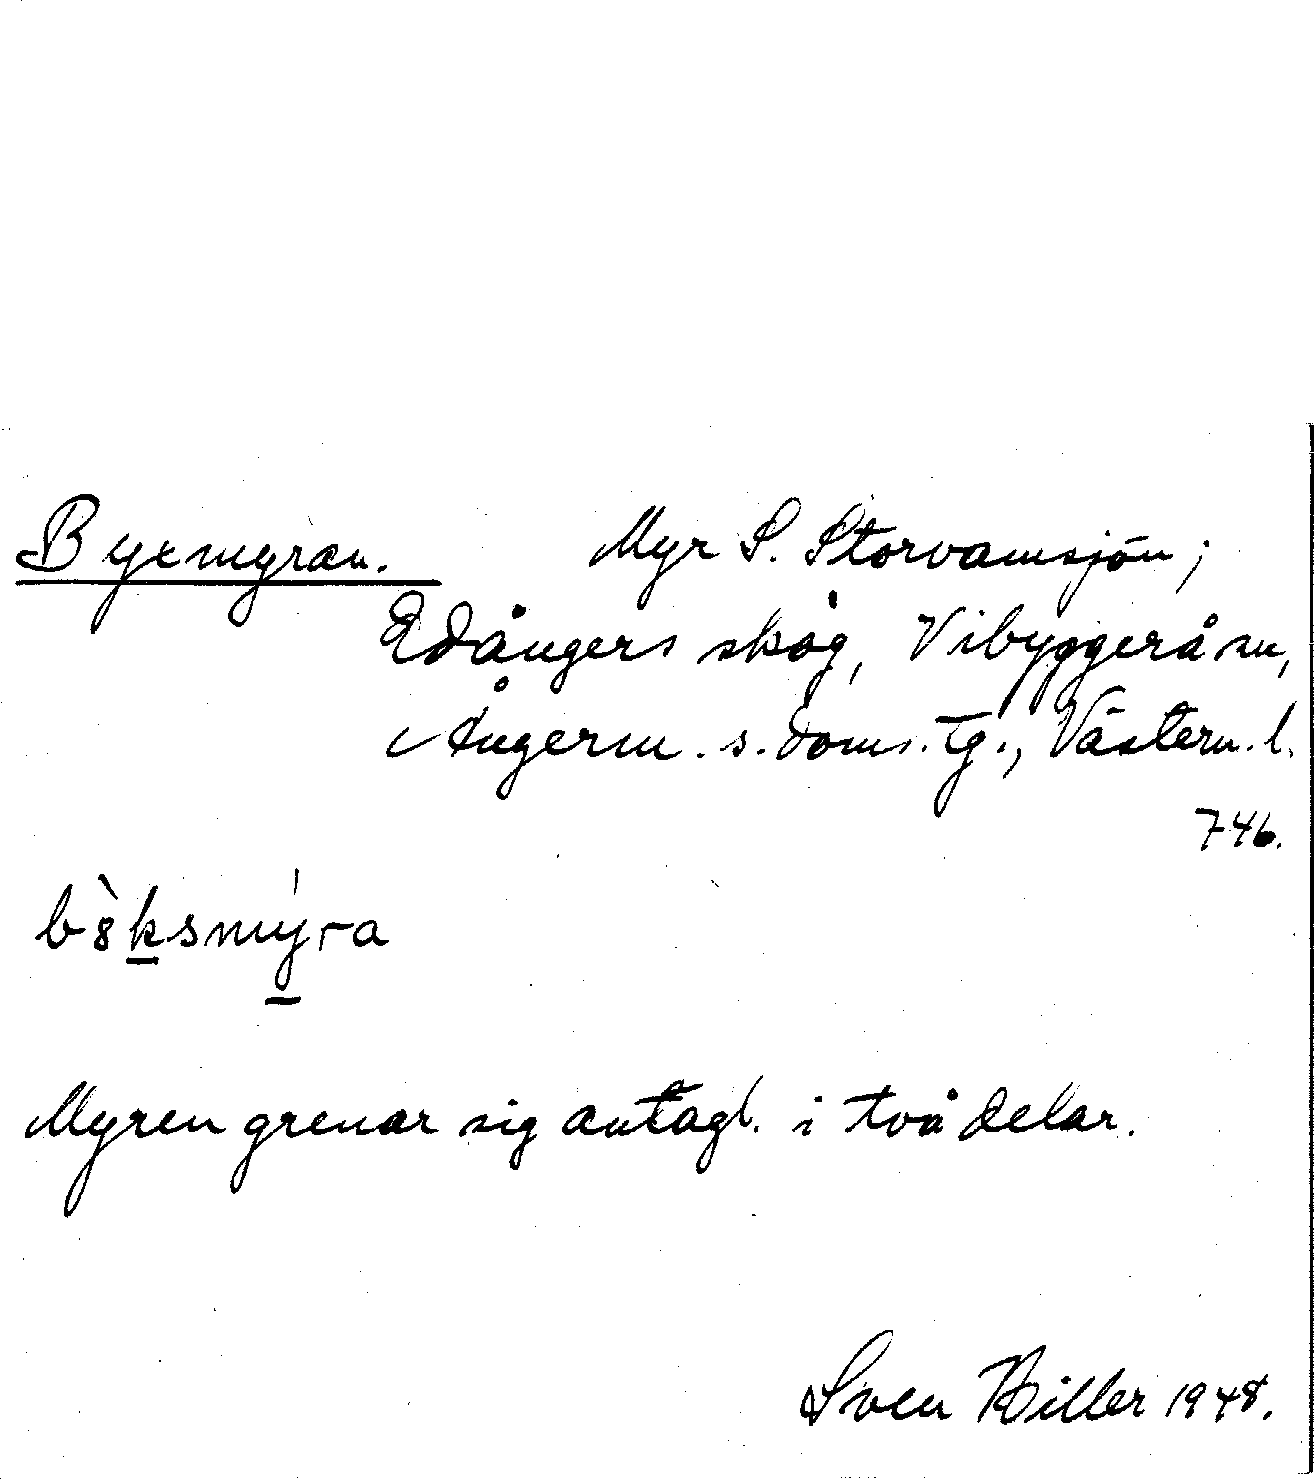 Byxmyran. Myr S. Storvamsjön;
Edångers skog, Vibyggerå sn,
Ångerm. s. doms. tg., Västern. l.
746.
Myren grenar sig antagl. i två delar.
Sven Biller 1948.